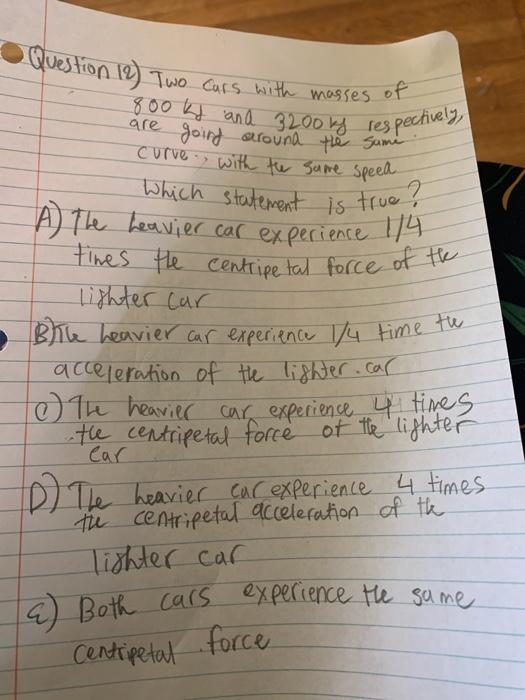 Question 12) Two cars with masses of
800 kg and 3200 kg respectively,
are going around the same
curve, with the same speed
Which statement is true?
A) The heavier car experience 1/4
times the centripetal force of the
lighter car
B) The heavier car experience 1/4 time the
acceleration of the lighter car
C) The heavier car experience 4 times
the centripetal force of the lighter
car
D) The heavier car experience 4 times
the centripetal acceleration of the
lighter car
E) Both cars experience the same
centripetal force